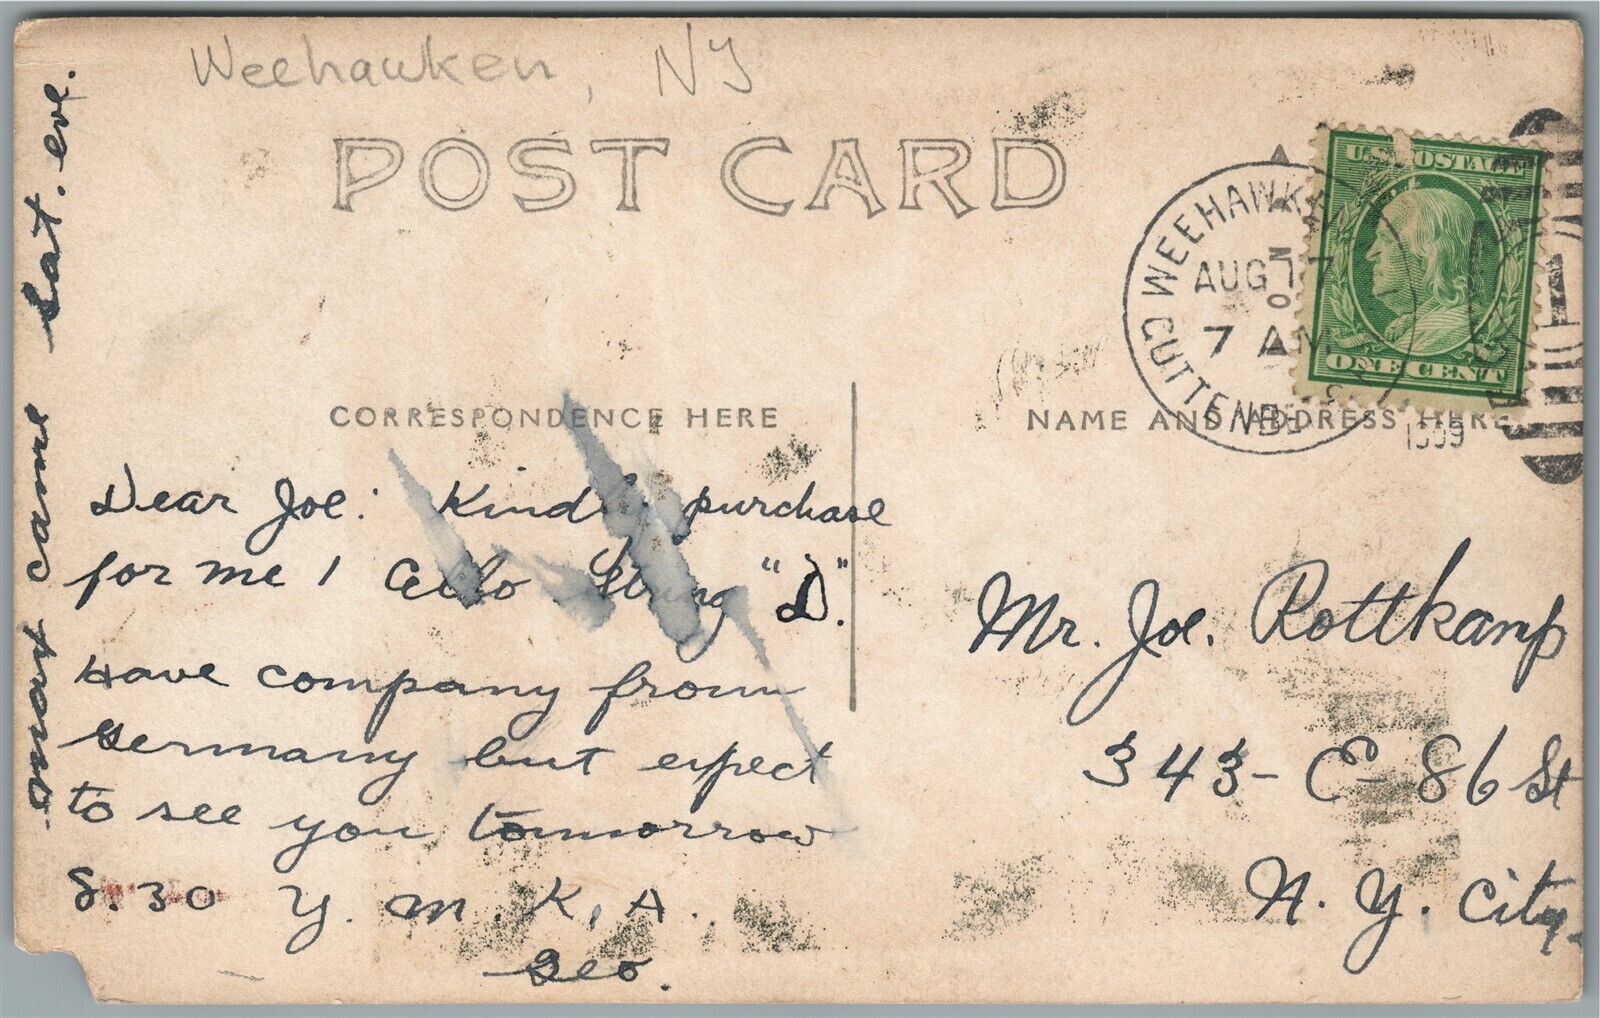 Weehawken, NJ
POST CARD
U.S. POSTAGE
ONE CENT
WEEHAWKEN
AUG 17
7 AM
GUTTENBG
1909
CORRESPONDENCE HERE
NAME AND ADDRESS HERE
Dear Joe: Kindly purchase
for me 1 Cello String "D".
Have company from
Germany but expect
to see you tomorrow
8.30 Y. M. K. A.
Geo.
came Sat. eve.
Mr. Joe. Rottkamp
343- E- 86 St
N. Y. City